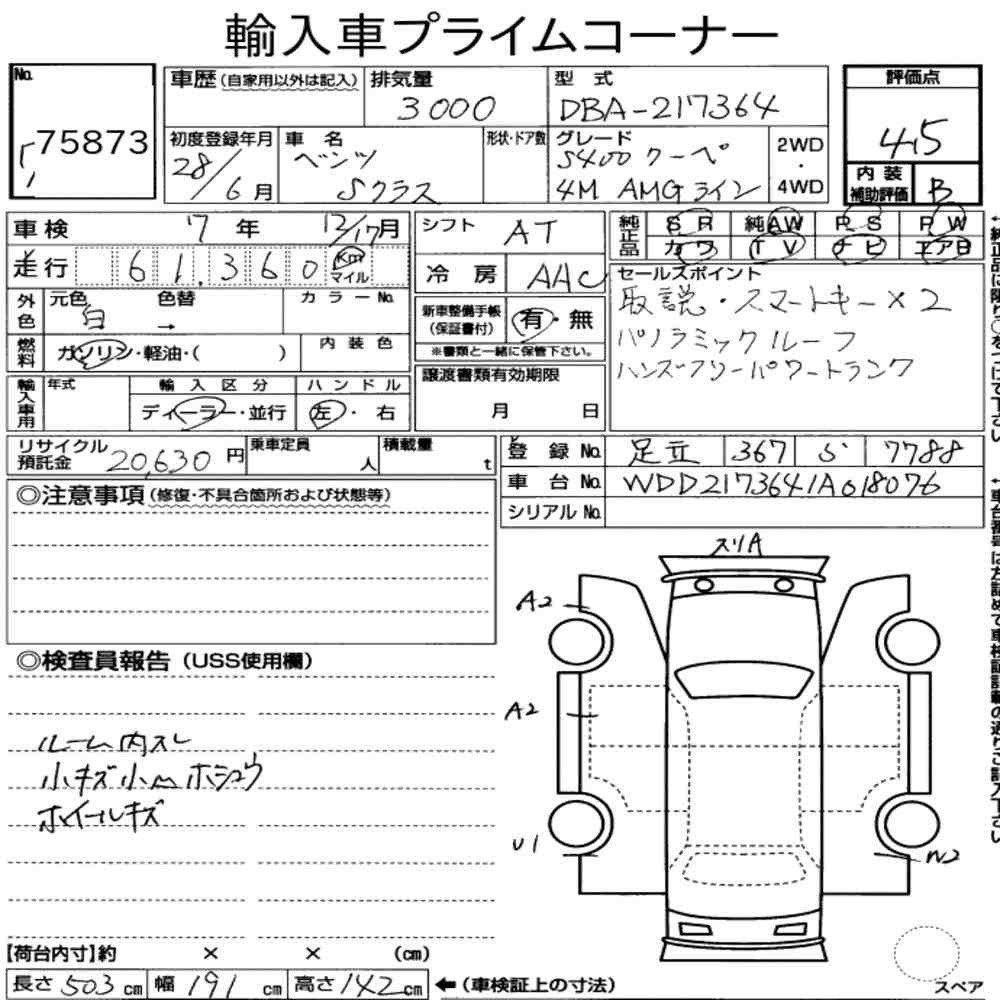 輸入車プライムコーナー
No. 75873
車歴 (自家用以外は記入)
排気量 3000
型式 DBA-217364
評価点 4.5
初度登録年月 28/6月
車名 ベンツ Sクラス
形状・ドア数
グレード S400 クーペ
4M AMGライン
2WD ・ 4WD
内装補助評価 B
車検 7年 12/17月
シフト AT
純正品 SR 純AW PS PW
カワ TV ナビ エアB
走行 61,360 Km マイル
冷房 AAC
セールスポイント
取説・スマートキー×2
パノラミックルーフ
ハンズフリーパワートランク
外色 元色 白 色替 → カラーNo.
新車整備手帳 (保証書付) 有・無
※書類と一緒に保管下さい。
燃料 ガソリン・軽油・( )
内装色
譲渡書類有効期限
月 日
輸入車用 年式 輸入区分 ハンドル
ディーラー・並行 左・右
リサイクル預託金 20,630円
乗車定員 人
積載量 t
登録No. 足立 367 7788
車台No. WDD2173641A018076
シリアルNo.
◎注意事項 (修復・不具合箇所および状態等)
スリA
A2
◎検査員報告 (USS使用欄)
A2
ルーム内スレ
小キズ小凹ホシュウ
ホイールキズ
U1
W2
【荷台内寸】約 × × (cm)
長さ 503 cm 幅 191 cm 高さ 142 cm ←(車検証上の寸法)
スペア